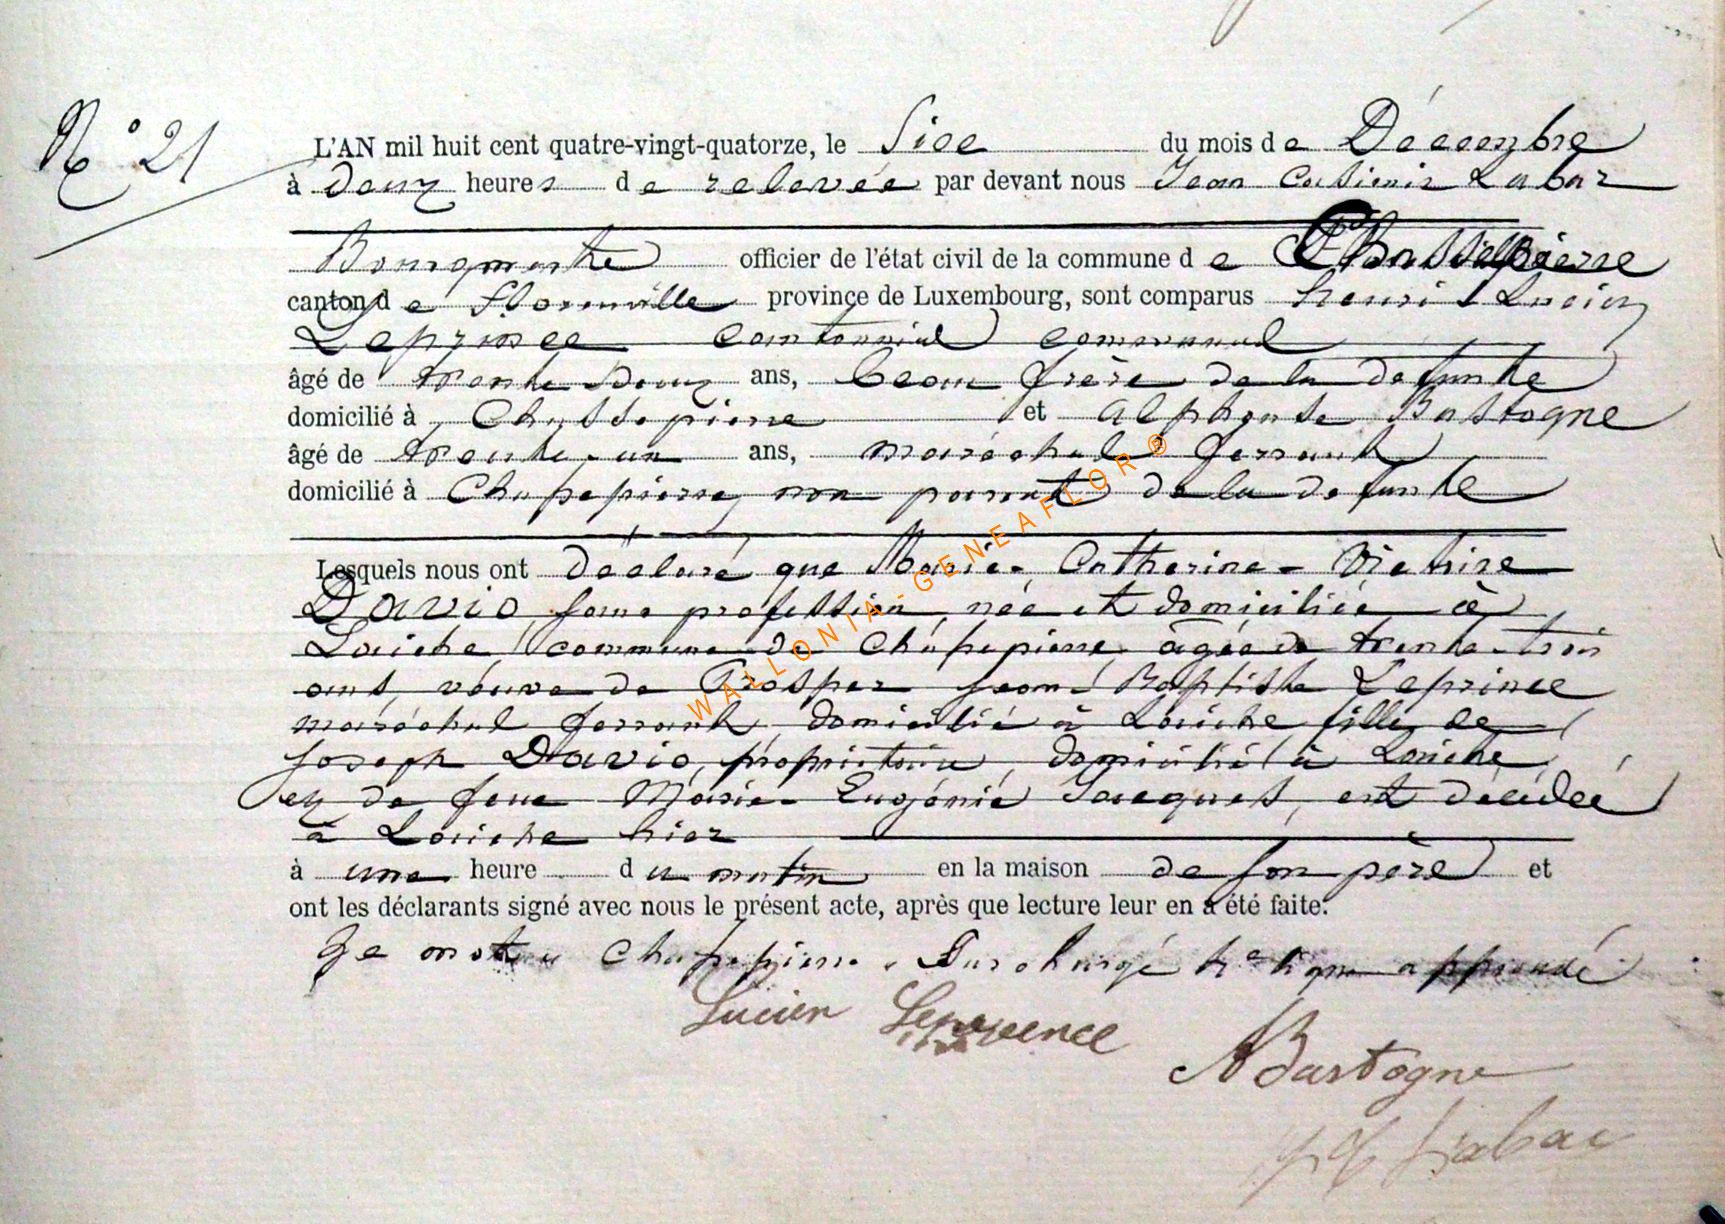 N° 21
L'AN mil huit cent quatre-vingt-quatorze, le Sice du mois de Décembre
à deux heures de relevée par devant nous Jean Casimir Labar
Bourgmestre officier de l'état civil de la commune de Chassepierre
canton de Florenville province de Luxembourg, sont comparus Henri Lucien
Leprince cantonnier communal
âgé de trente deux ans, beau frère de la defunte
domicilié à Chassepierre et Alphonse Bastogne
âgé de trente-un ans, maréchal ferrant
domicilié à Chassepierre, non parent de la defunte
Lesquels nous ont déclaré que Marie-Catherine-Victorine
Davio, sans profession, née et domiciliée à
Laiche, commune de Chassepierre, âgée de trente-trois
ans, veuve de Prosper Jean-Baptiste Leprince
maréchal ferrant, domicilié à Laiche, fille de
Joseph Davio, propriétaire, domicilié à Laiche,
et de feue Marie-Eugénie Jacques, est décédée
à Laiche hier
à une heure du matin en la maison de son père et
ont les déclarants signé avec nous le présent acte, après que lecture leur en a été faite.
Le mot Chassepierre surchargé approuvé
Lucien Leprince
A Bastogne
J C Labar
WALLONIA-GENEAFLOR®